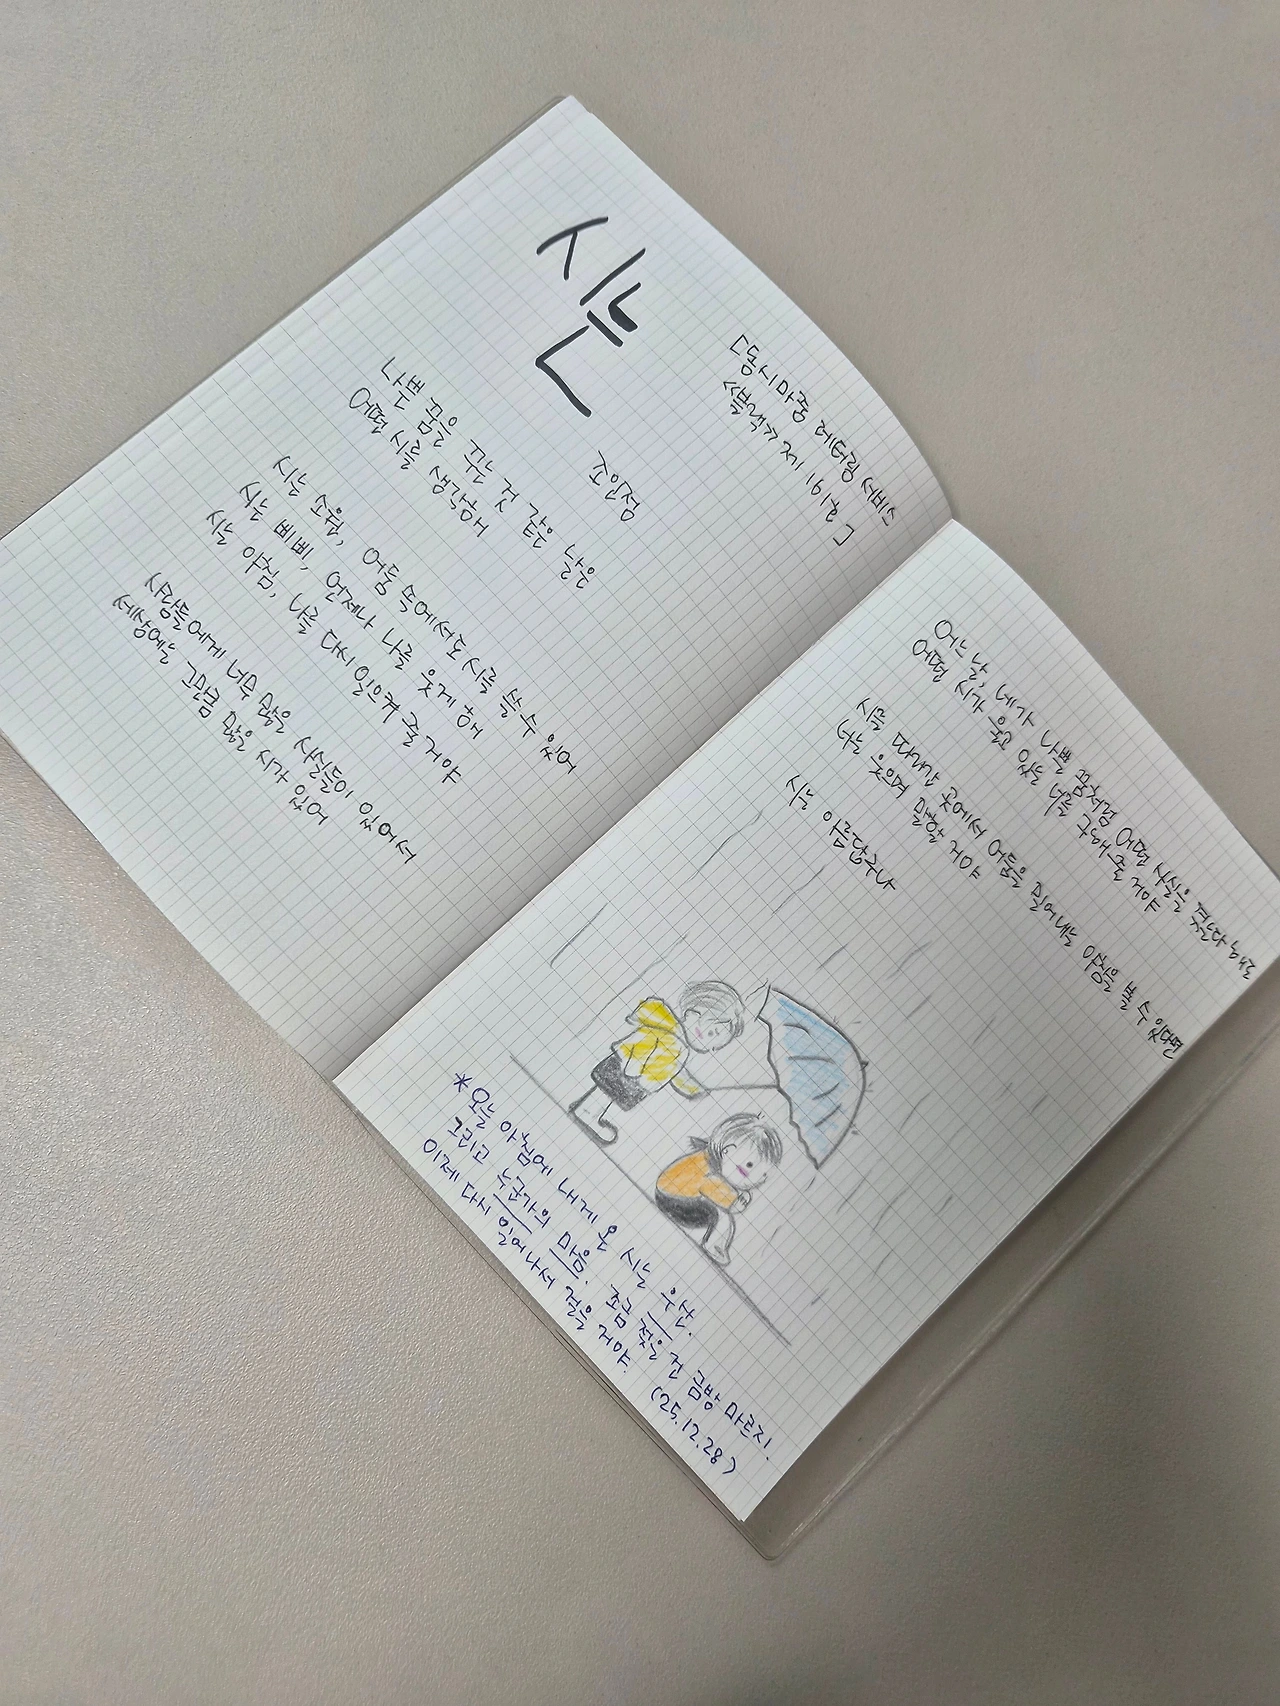 시는
조인정
[동시마중 레터링 서비스
블랙 제191호]
나쁜 꿈을 꾸는 것 같은 날은
어떤 시를 생각해
시는 소원, 어둠 속에서도 시를 쓸 수 있어
시는 삐삐, 언제나 나를 웃게 해
시는 아침, 나를 다시 일으켜 줄 거야
사람들에게 너무 많은 사실들이 있어서
세상에는 그만큼 많은 시가 있어
어느 날, 네가 나쁜 꿈처럼 어떤 사실을 겪는다 해도
어떤 시가 울고 있는 너를 구해 줄 거야
시는 곳에서 어둠을 밀어내는 아침을 볼 수 있다면
너는 웃으며 말할 거야
시는 아름답구나
*오늘 아침에 내게 온 시는 우산.
그리고 누군가의 마음. 조금 젖은 건 금방 마르지.
이제 다시 일어나서 걸을 거야. (25.12.28)